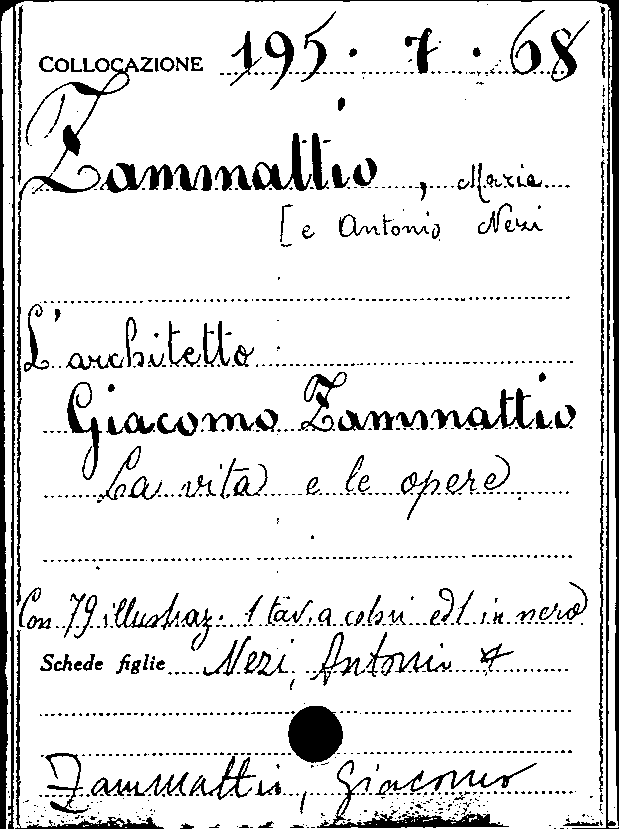 COLLOCAZIONE 195. 7. 68
Zammattio, Maria
[e Antonio Neri
L'architetto
Giacomo Zammattio
La vita e le opere
Con 79 illustraz. 1 tav. a colori ed 1 in nero
Schede figlie Neri, Antonio +
Zammattio, Giacomo